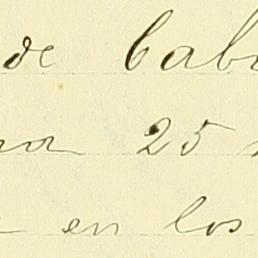 de Cab
na 25
en los